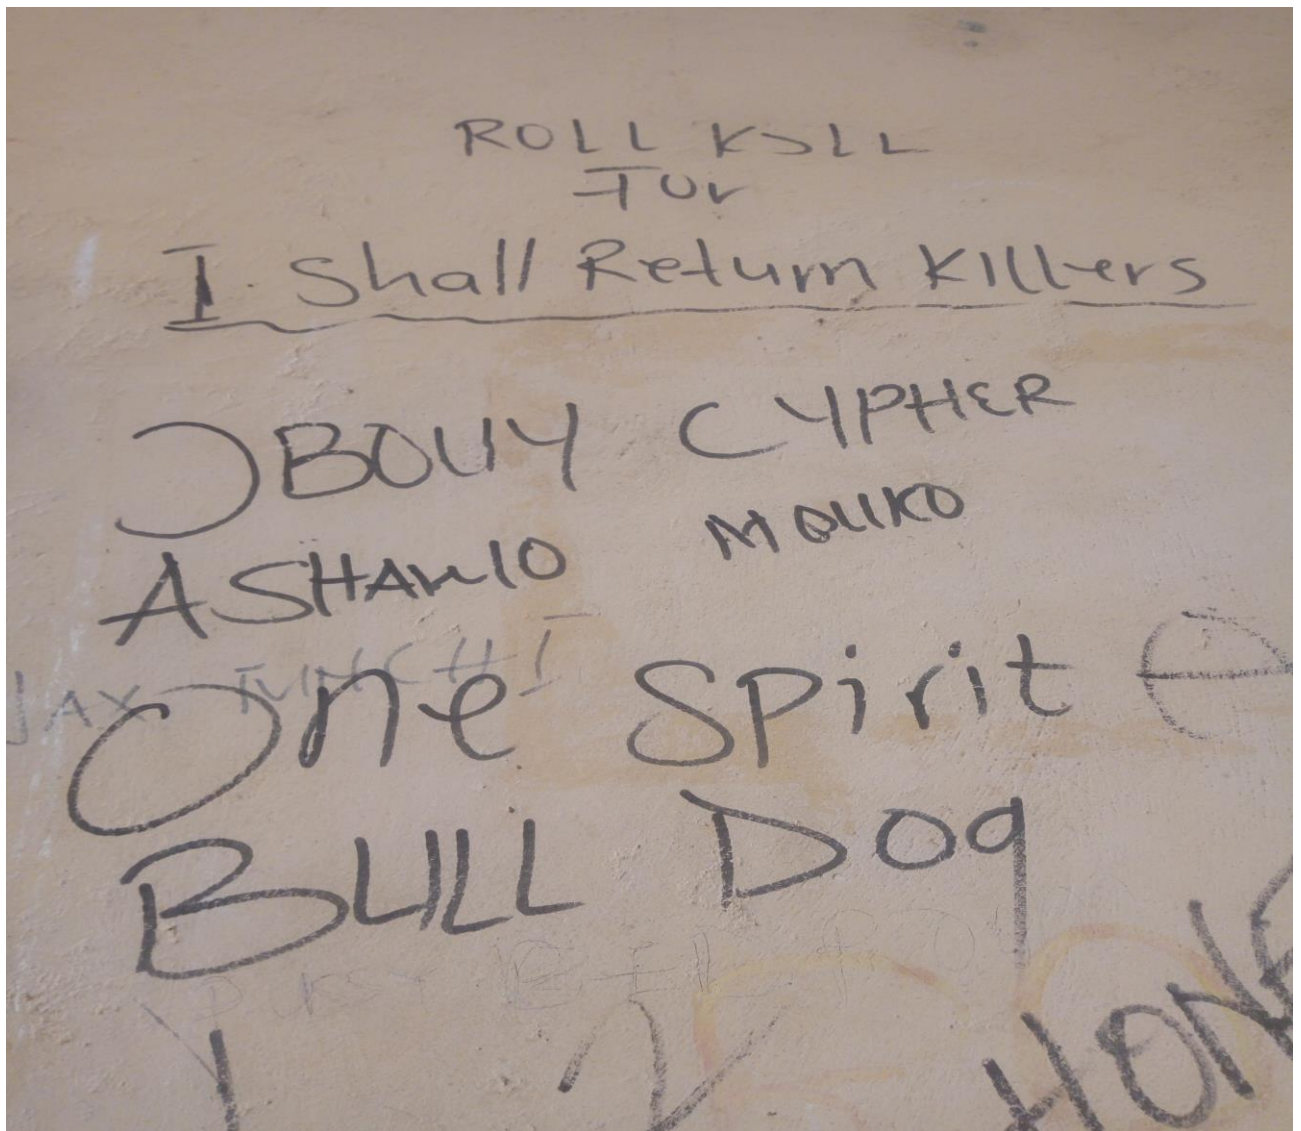 ROLL KSLL
For
I Shall Return Killers
JBOUY CYPHER
ASHANIO MOUKO
JAX TUNCHI
One Spirit
BULL Dog
HONE